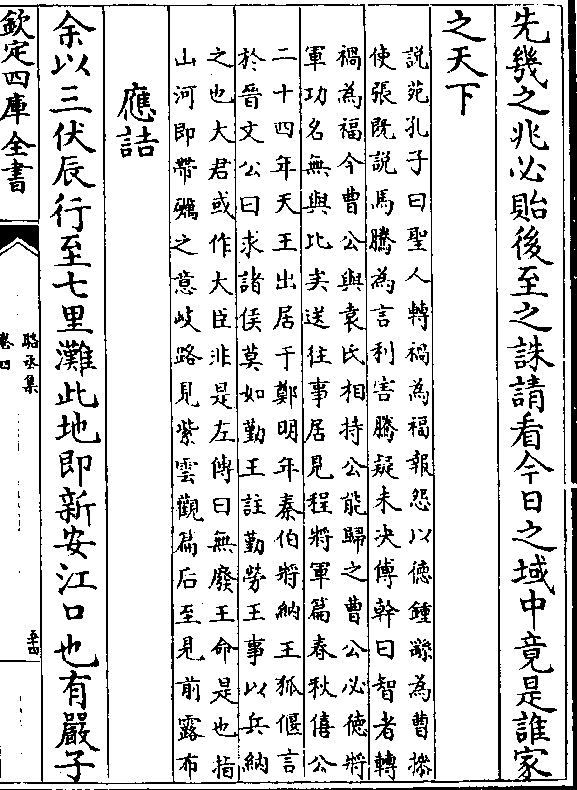 先幾之兆必貽後至之誅請看今日之域中竟是誰家
之天下
說苑孔子曰聖人轉禍為福報怨以德鍾繇為曹操
使張既說馬騰為言利害騰疑未決傅幹曰智者轉
禍為福今曹公與袁氏相持公能歸之曹公必德將
軍功名無與比矣送往事居見程將軍篇春秋僖公
二十四年天王出居于鄭明年秦伯將納王狐偃言
於晉文公曰求諸侯莫如勤王註勤勞王事以兵納
之也大君或作大臣非是左傳曰無廢王命是也指
山河即帶礪之意岐路見紫雲觀篇后至見前露布
應詰
余以三伏辰行至七里灘此地即新安江口也有嚴子
欽定四庫全書
駱丞集
卷四